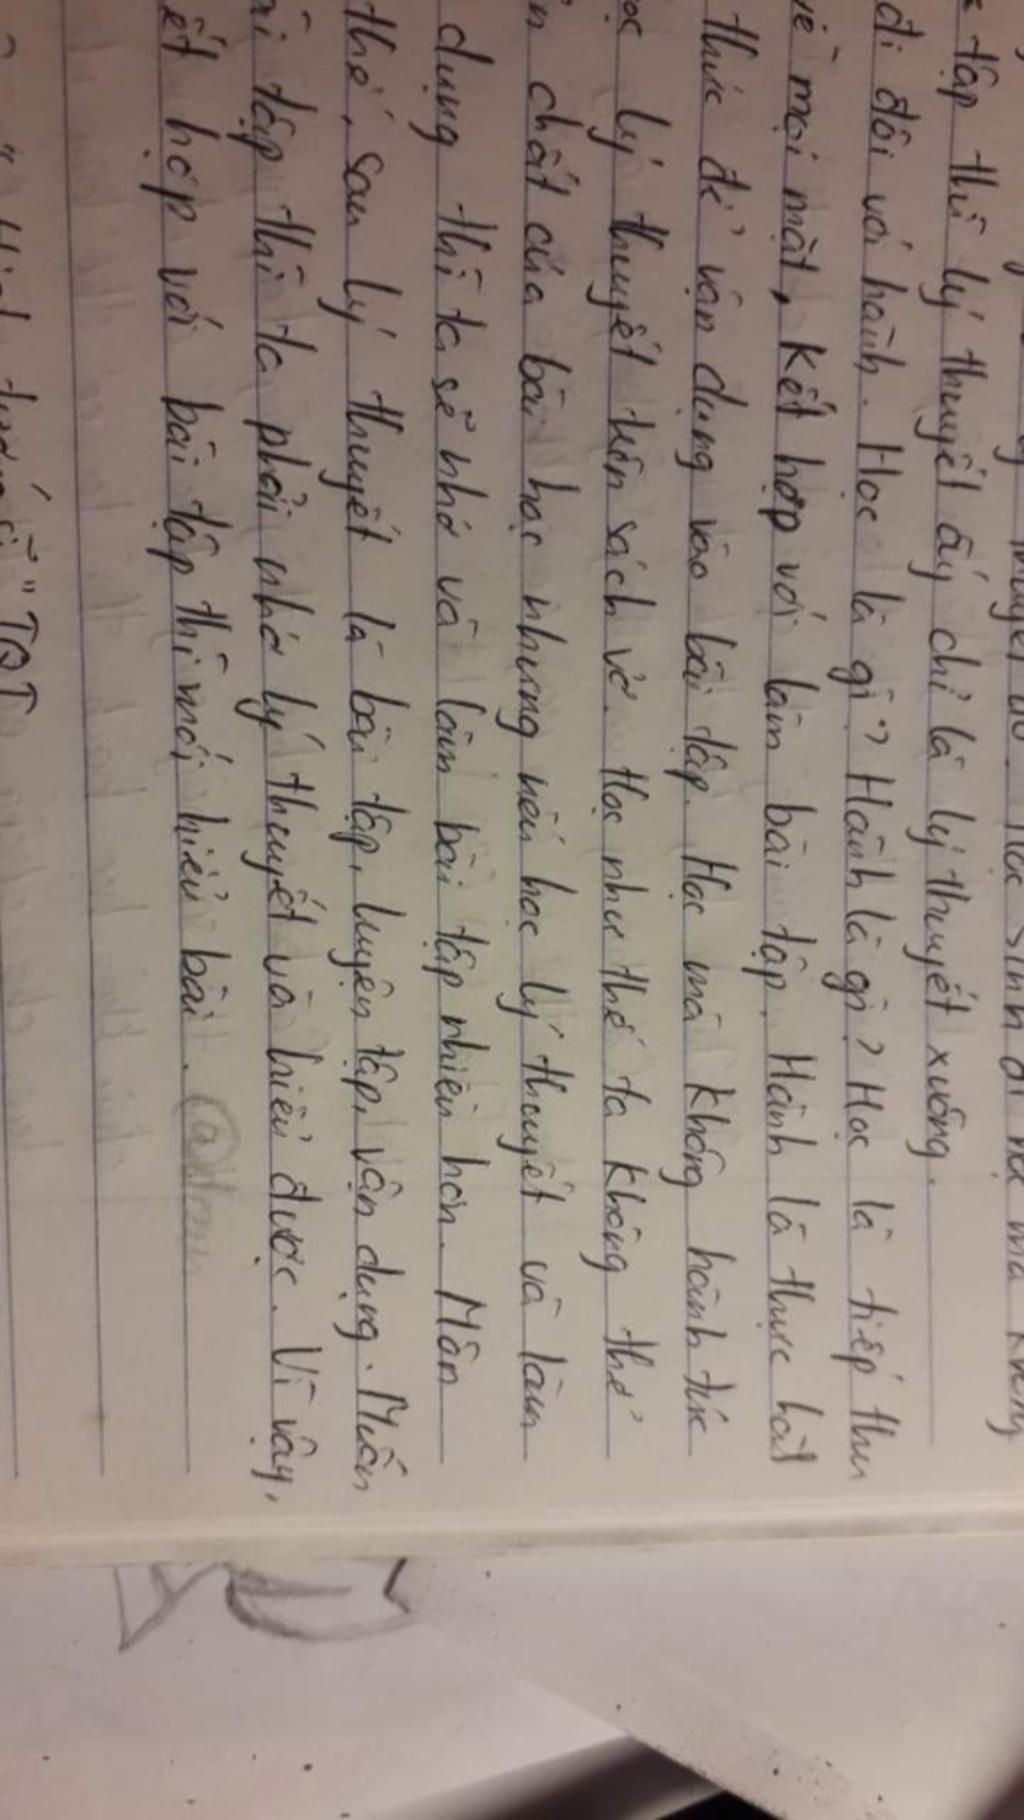 thuyết đó. Học sinh đi học mà không
tập thì lý thuyết ấy chỉ là lý thuyết xuông.
đi đôi với hành. Học là gì? Hành là gì? Học là tiếp thu
về mọi mặt, kết hợp với làm bài tập. Hành là thực hành
thức để vận dụng vào bài tập. Học mà không hành tức
học lý thuyết trên sách vở. Học như thế ta không thể
chất của bài học nhưng nếu học lý thuyết và làm
dụng thì ta sẽ nhớ và làm bài tập nhiều hơn. Môn
thế, sau lý thuyết là bài tập, luyện tập, vận dụng. Muốn
tập thì ta phải nhớ lý thuyết và hiểu được. Vì vậy,
hợp với bài tập thì mới hiểu bài.
"Hịch tướng sĩ" TQT